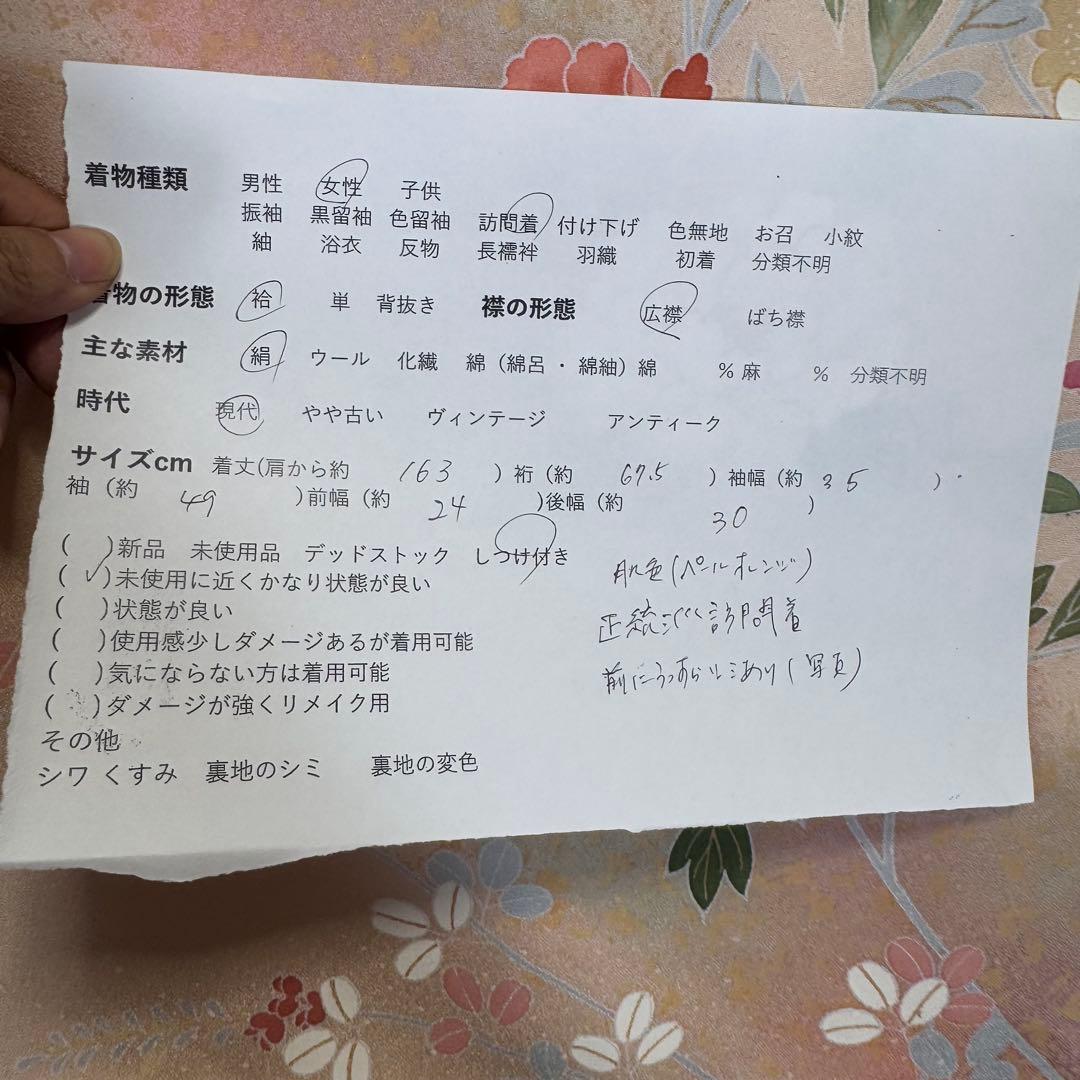 着物種類 男性 女性 子供
振袖 黒留袖 色留袖 訪問着 付け下げ 色無地 お召 小紋
紬 浴衣 反物 長襦袢 羽織 初着 分類不明
着物の形態 袷 単 背抜き 襟の形態 広襟 ばち襟
主な素材 絹 ウール 化繊 綿 (綿呂・綿紬) 綿 % 麻 % 分類不明
時代 現代 やや古い ヴィンテージ アンティーク
サイズcm 着丈(肩から約 163 ) 裄 (約 67.5 ) 袖幅 (約 35 )
袖 (約 49 )前幅 (約 24 )後幅 (約 30 )
( )新品 未使用品 デッドストック しつけ付き
( ✓ )未使用に近くかなり状態が良い
( )状態が良い
( )使用感少しダメージあるが着用可能
( )気にならない方は着用可能
( )ダメージが強くリメイク用
その他
シワ くすみ 裏地のシミ 裏地の変色
肌色(ペールオレンジ)
正統派訪問着
前にうっすらシミあり(写真)